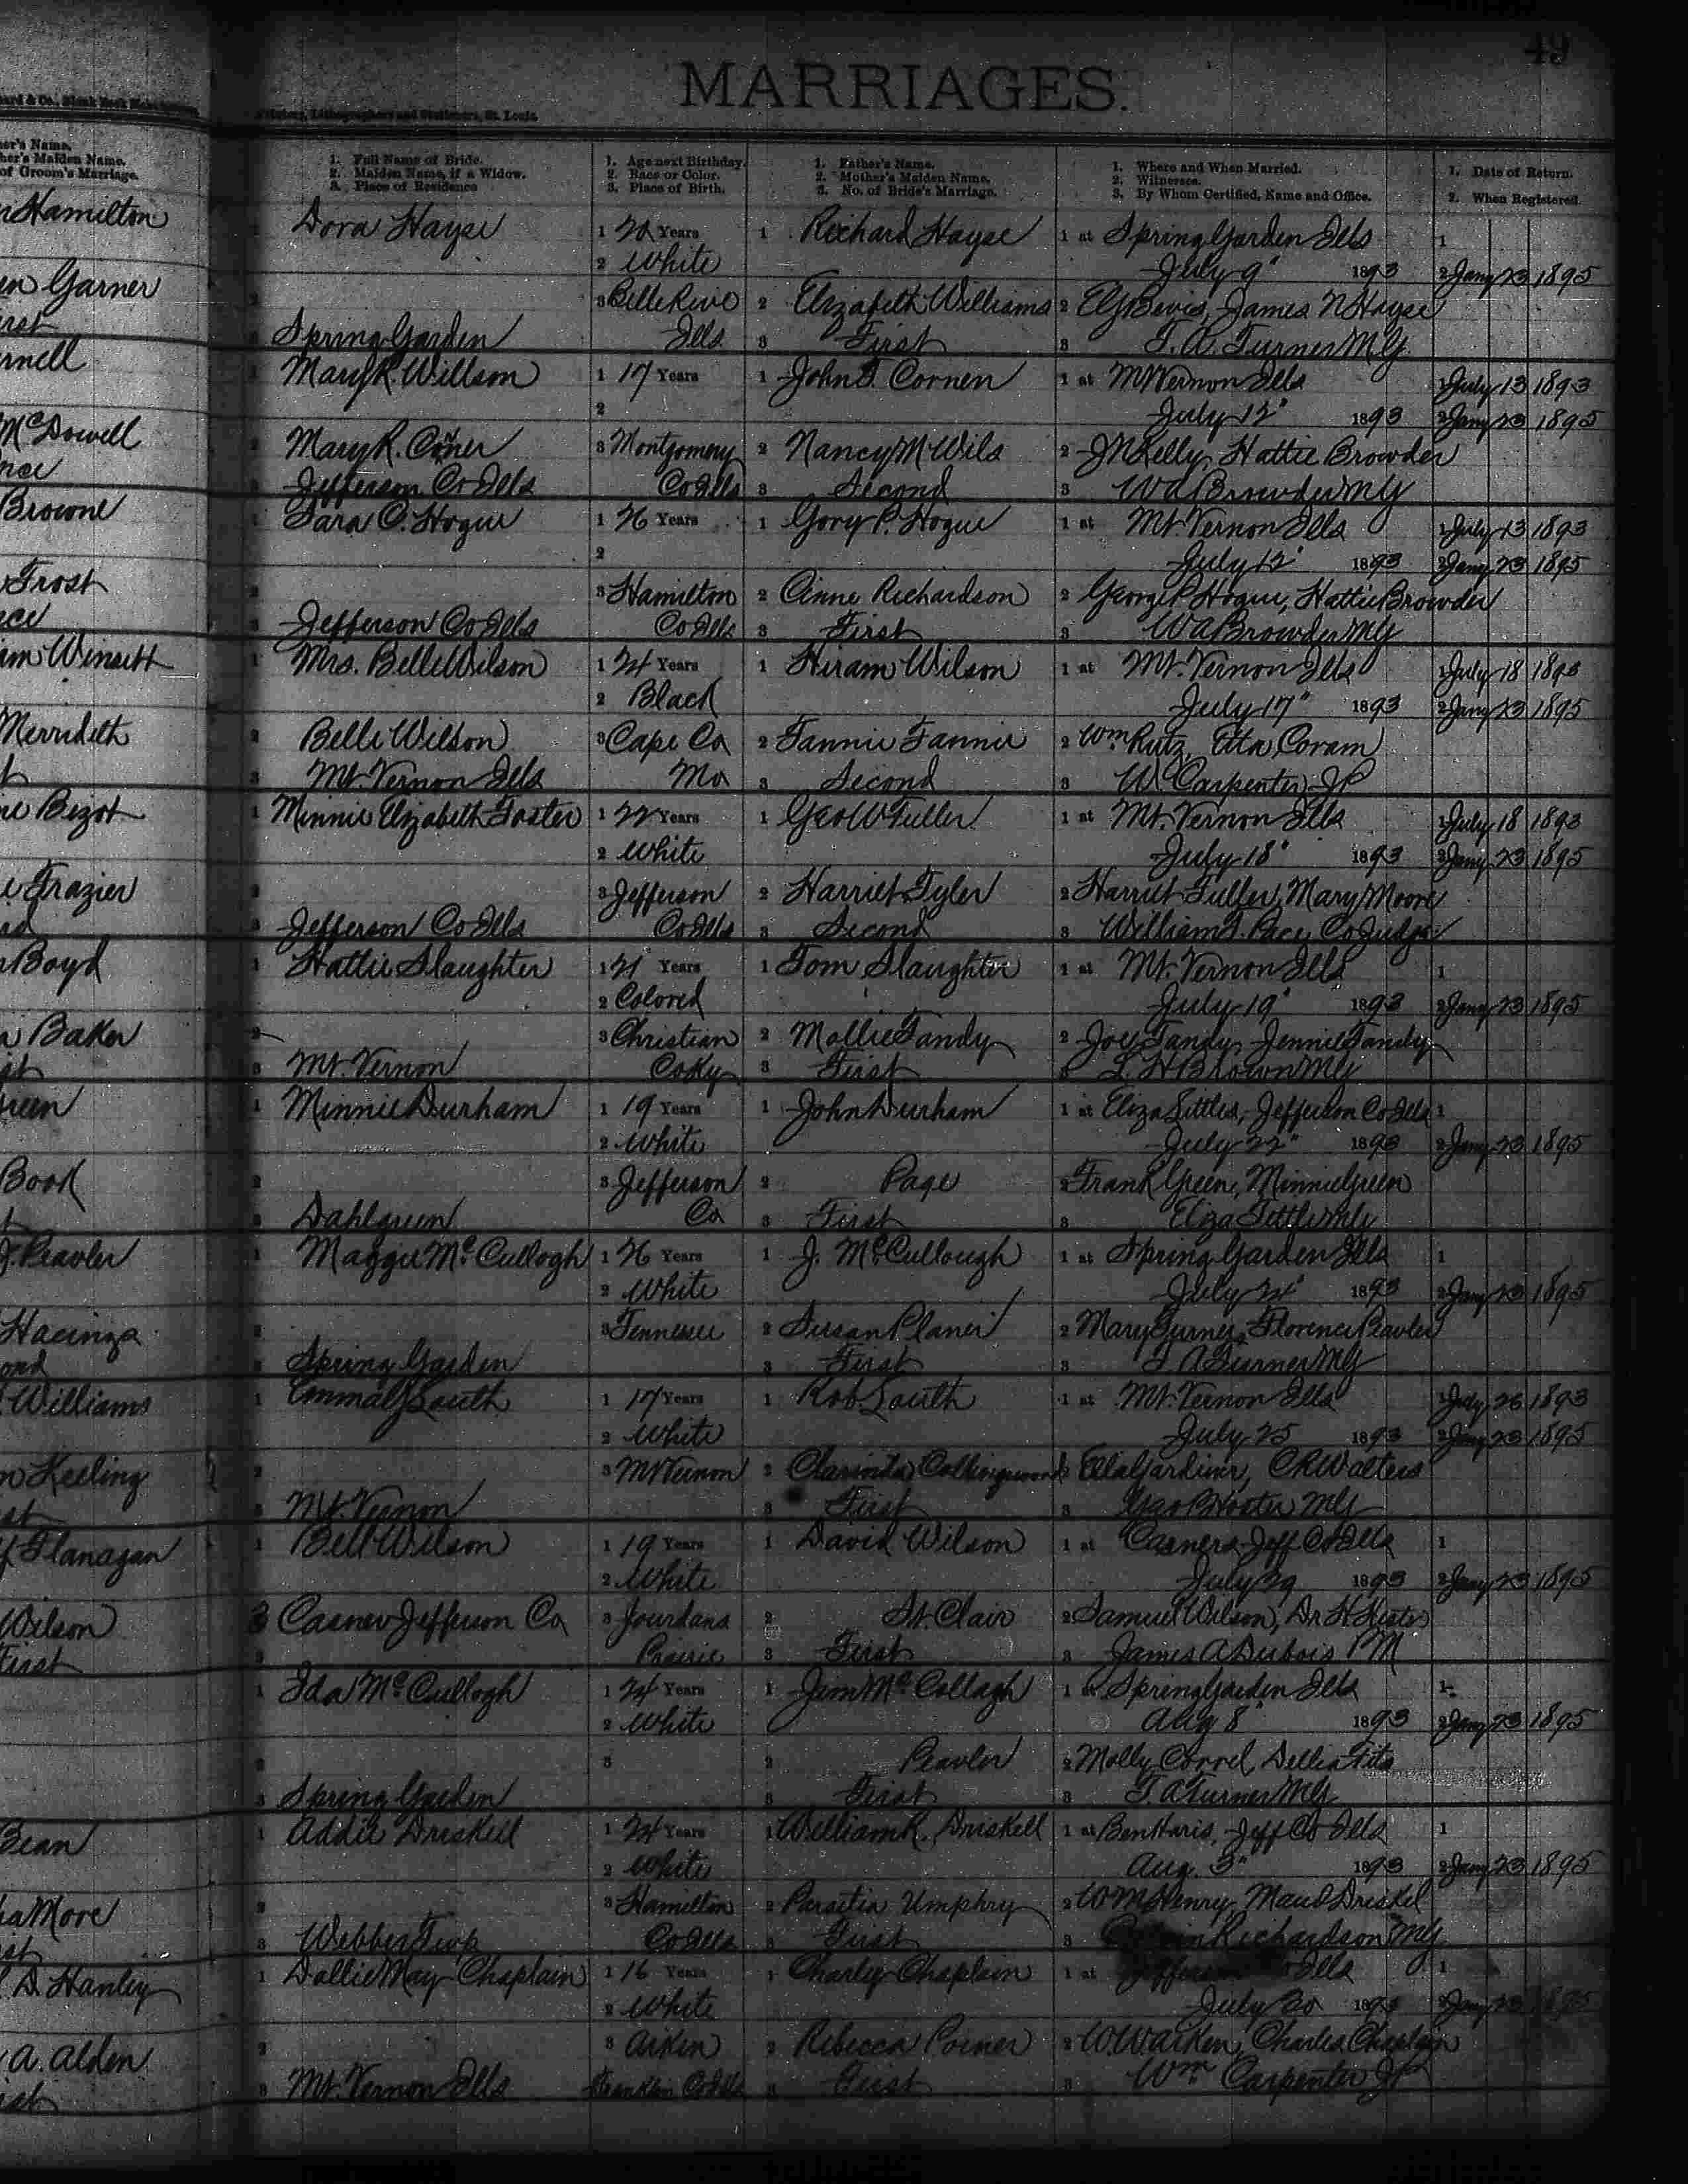 49
MARRIAGES.
Printers, Lithographers and Stationers, St. Louis.
er's Name.
her's Maiden Name.
of Groom's Marriage.
1. Full Name of Bride.
2. Maiden Name, if a Widow.
3. Place of Residence
1. Age next Birthday.
2. Race or Color.
3. Place of Birth.
1. Father's Name.
2. Mother's Maiden Name.
3. No. of Bride's Marriage.
1. Where and When Married.
2. Witnesses.
3. By Whom Certified, Name and Office.
1. Date of Return.
2. When Registered.
Hamilton
Dora Hayse 1 20 Years 1 Richard Hayse 1 at Spring Garden Ills 1
2 White July 9" 1893 2 Jany 23 1895
Garner
3 Belle Rive 2 Elizabeth Williams 2 James N Hayse
Spring Garden Ills 3 First 3 T. A. Turner MG
Mary R. Willson 1 17 Years 1 John T. Cornen 1 at Mt Vernon Ills 1 July 13 1893
2 July 12" 1893 2 Jany 23 1895
McDowell
2 Mary R. 3 Montgomery 2 Nancy M Wils 2 J N Kelly, Hattie Browder
Jefferson Co Ills Co Ills 3 Second 3 W A Browder MG
Browne
1 Sara C. Hogue 1 26 Years 1 Gory P. Hogue 1 at Mt. Vernon Ills 1 July 13 1893
2 July 12" 1893 2 Jany 23 1895
Frost
3 Hamilton 2 Anne Richardson 2 George P Hogue, Hattie Browder
3 Jefferson Co Ills Co Ills 3 First 3 W A Browder MG
Winsett
1 Mrs. Belle Wilson 1 24 Years 1 Hiram Wilson 1 at Mt. Vernon Ills 1 July 18 1893
2 Black July 17" 1893 2 Jany 23 1895
Merrideth
2 Belle Wilson 3 Cape Co 2 Fannie Fannie 2 Wm Rutz, Etta Coram
3 Mt. Vernon Ills Mo 3 Second 3 W. Carpenter JP
Bizot
1 Minnie Elizabeth Foster 1 22 Years 1 Geo W Fuller 1 at Mt. Vernon Ills 1 July 18 1893
2 White July 18" 1893 2 Jany 23 1895
Frazier
3 Jefferson 2 Harriet Tyler 2 Harriet Fuller, Mary Moore
3 Jefferson Co Ills Co Ills 3 Second 3 William T. Pace, Co Judge
Boyd
1 Hattie Slaughter 1 21 Years 1 Tom Slaughter 1 at Mt. Vernon Ills 1
2 Colored July 19" 1893 2 Jany 23 1895
Baker
2 3 Christian 2 Mollie Tandy 2 Joe Tandy, Jennie Tandy
3 Mt. Vernon Co Ky 3 First 3 L. H Brown MG
1 Minnie Durham 1 19 Years 1 John Durham 1 at Eliza Settles, Jefferson Co Ills 1
2 White July 22" 1893 2 Jany 23 1895
Book
2 3 Jefferson 2 Page 2 Frank Green, Minnie Green
3 Dahlgreen Co 3 First 3 Eliza Settle MG
J. Peavler
1 Maggie McCullogh 1 26 Years 1 J. McCullough 1 at Spring Garden Ills 1
2 White July 24" 1893 2 Jany 23 1895
3 Tennessee 2 Susan Planer 2 Mary Turner, Florence Peavler
Spring Garden 3 First 3 T A Turner MG
Williams
1 1 17 Years 1 Rob. South 1 at Mt. Vernon Ills 1 July 26 1893
2 White July 25 1893 2 Jany 23 1895
Keeling
2 3 Mt Vernon 2 Clarinda Collingwood 2 Ella Gardiner, C R Walters
3 Mt. Vernon 3 First 3 MG
Flanagan
1 Bell Wilson 1 19 Years 1 David Wilson 1 at Casners Jeff Co Ills 1
2 White July 29 1893 2 Jany 23 1895
Wilson
3 Casner Jefferson Co 3 Jourdans 2 St. Clair 2 Samuel Wilson,
First
Prairie 3 First 3 James A Dubois PM
1 Ida McCullogh 1 24 Years 1 Jim McCollagh 1 at Spring Garden Ills 1
2 White Aug 8" 1893 2 Jany 23 1895
2 3 2 Peavler 2 Molly Correl,
3 Spring Garden 3 First 3 T. A Turner MG
Bean
1 Addie Driskell 1 24 Years 1 William R. Driskell 1 at Ben Haris, Jeff Co Ills 1
2 White Aug. 3" 1893 2 Jany 23 1895
More
2 3 Hamilton 2 Umphry 2 Wm Henry, Maud Driskel
3 Webber Twp Co Ills 3 First 3 Richardson MG
D. Hanley
1 Dollie May Chaplain 1 16 Years 1 Charley Chaplain 1 at Ills 1
2 White July 20 1893 2 Jany 23 1895
A. Alden
2 3 Aiken 2 Rebecca Poiner 2 W W Aiken, Charles Chaplain
3 Mt. Vernon Ills Franklin Co Ills 3 First 3 Wm Carpenter JP